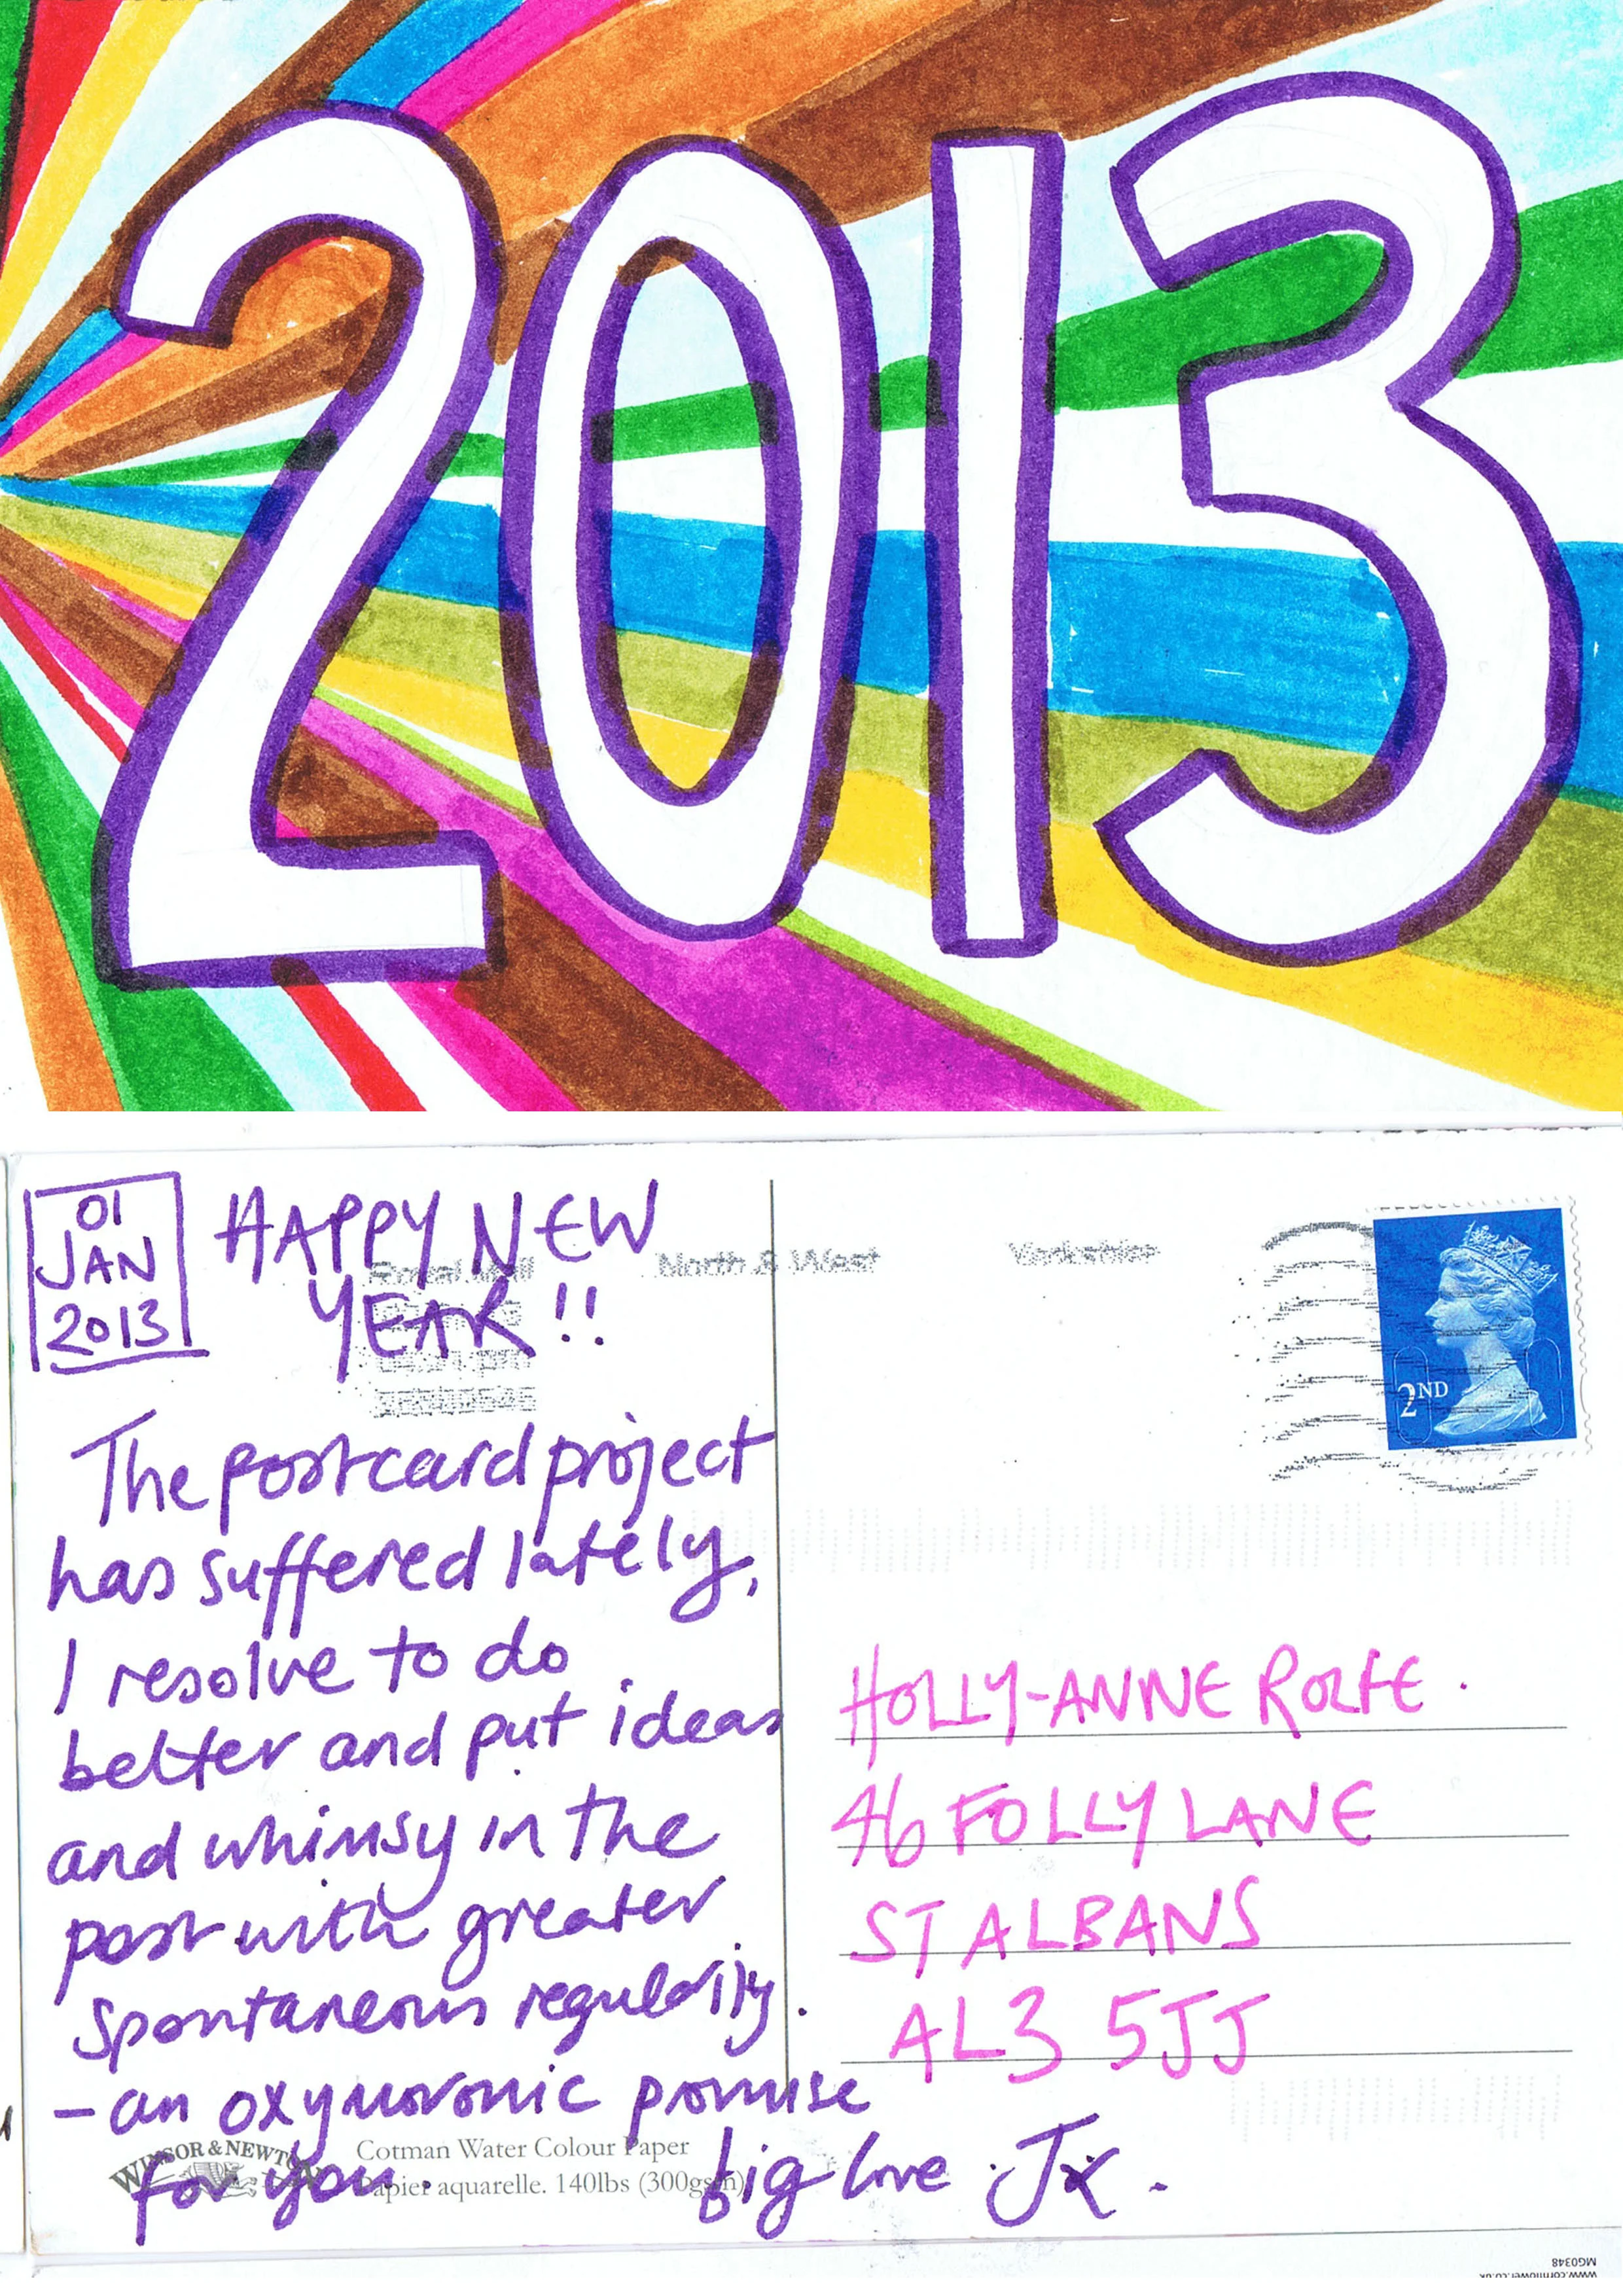 2013
01
JAN
2013
HAPPY NEW
YEAR!!
Royal Mail
North & West
Yorkshire
2ND
The postcard project
has suffered lately,
I resolve to do
better and put ideas
and whimsy in the
post with greater
spontaneous regularity.
- an oxymoronic promise
for you.
big love Jx.
HOLLY-ANNE ROLFE.
46 FOLLY LANE
ST ALBANS
AL3 5JJ
WINSOR & NEWTON
Cotman Water Colour Paper
Papier aquarelle. 140lbs (300gsm)
MG0348